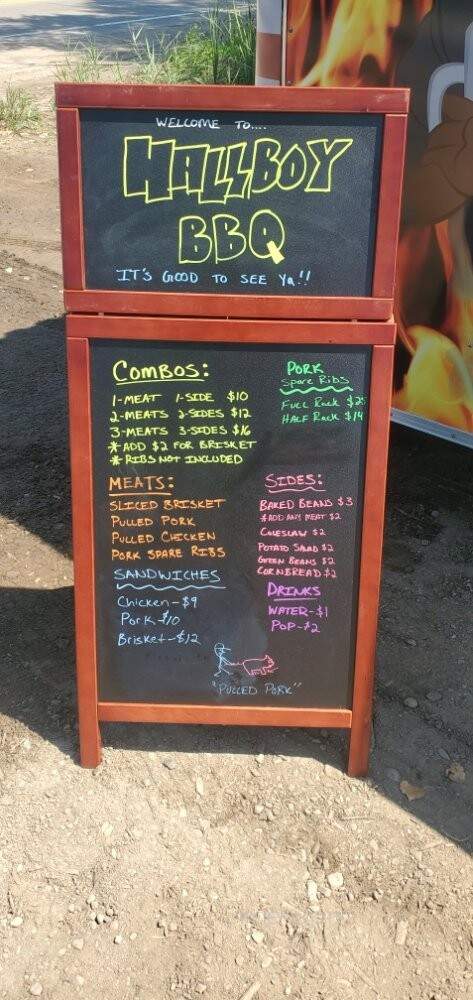 WELCOME TO....
HALLBOY
BBQ
IT'S GOOD TO SEE Ya!!
COMBOS:
1-MEAT 1-SIDE $10
2-MEATS 2-SIDES $12
3-MEATS 3-SIDES $16
* ADD $2 FOR BRISKET
* RIBS NOT INCLUDED
PORK
Spare Ribs
FULL Rack $25
HALF Rack $14
MEATS:
SLICED BRISKET
PULLED PORK
PULLED CHICKEN
PORK SPARE RIBS
SANDWICHES
Chicken-$9
Pork-$10
Brisket-$12
SIDES:
BAKED BEANS $3
*ADD ANY MEAT $2
COLESLAW $2
POTATO SALAD $2
GREEN BEANS $2
CORNBREAD $2
DRINKS
WATER-$1
POP-$2
"PULLED PORK"